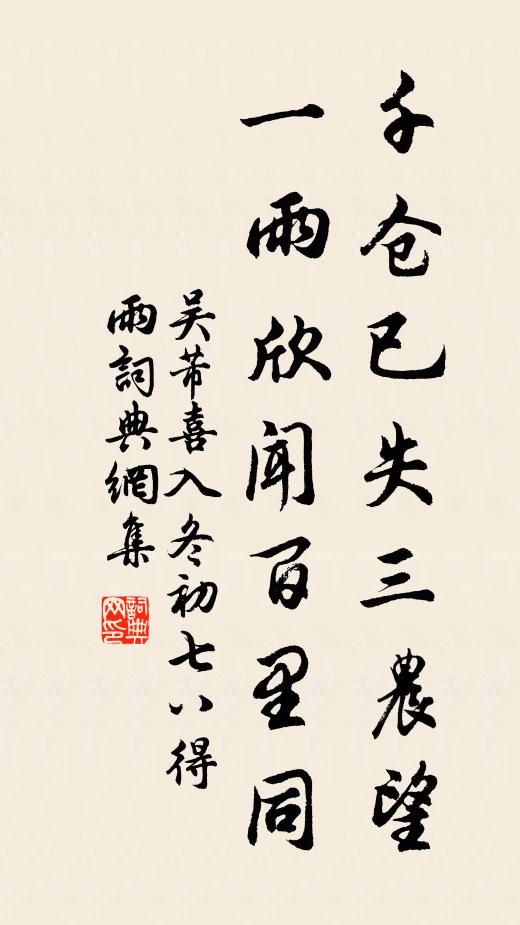 千仓已失三農望
一雨欣闻百里同
吴芾喜入冬初七八得
雨詞典網集
詞典网印